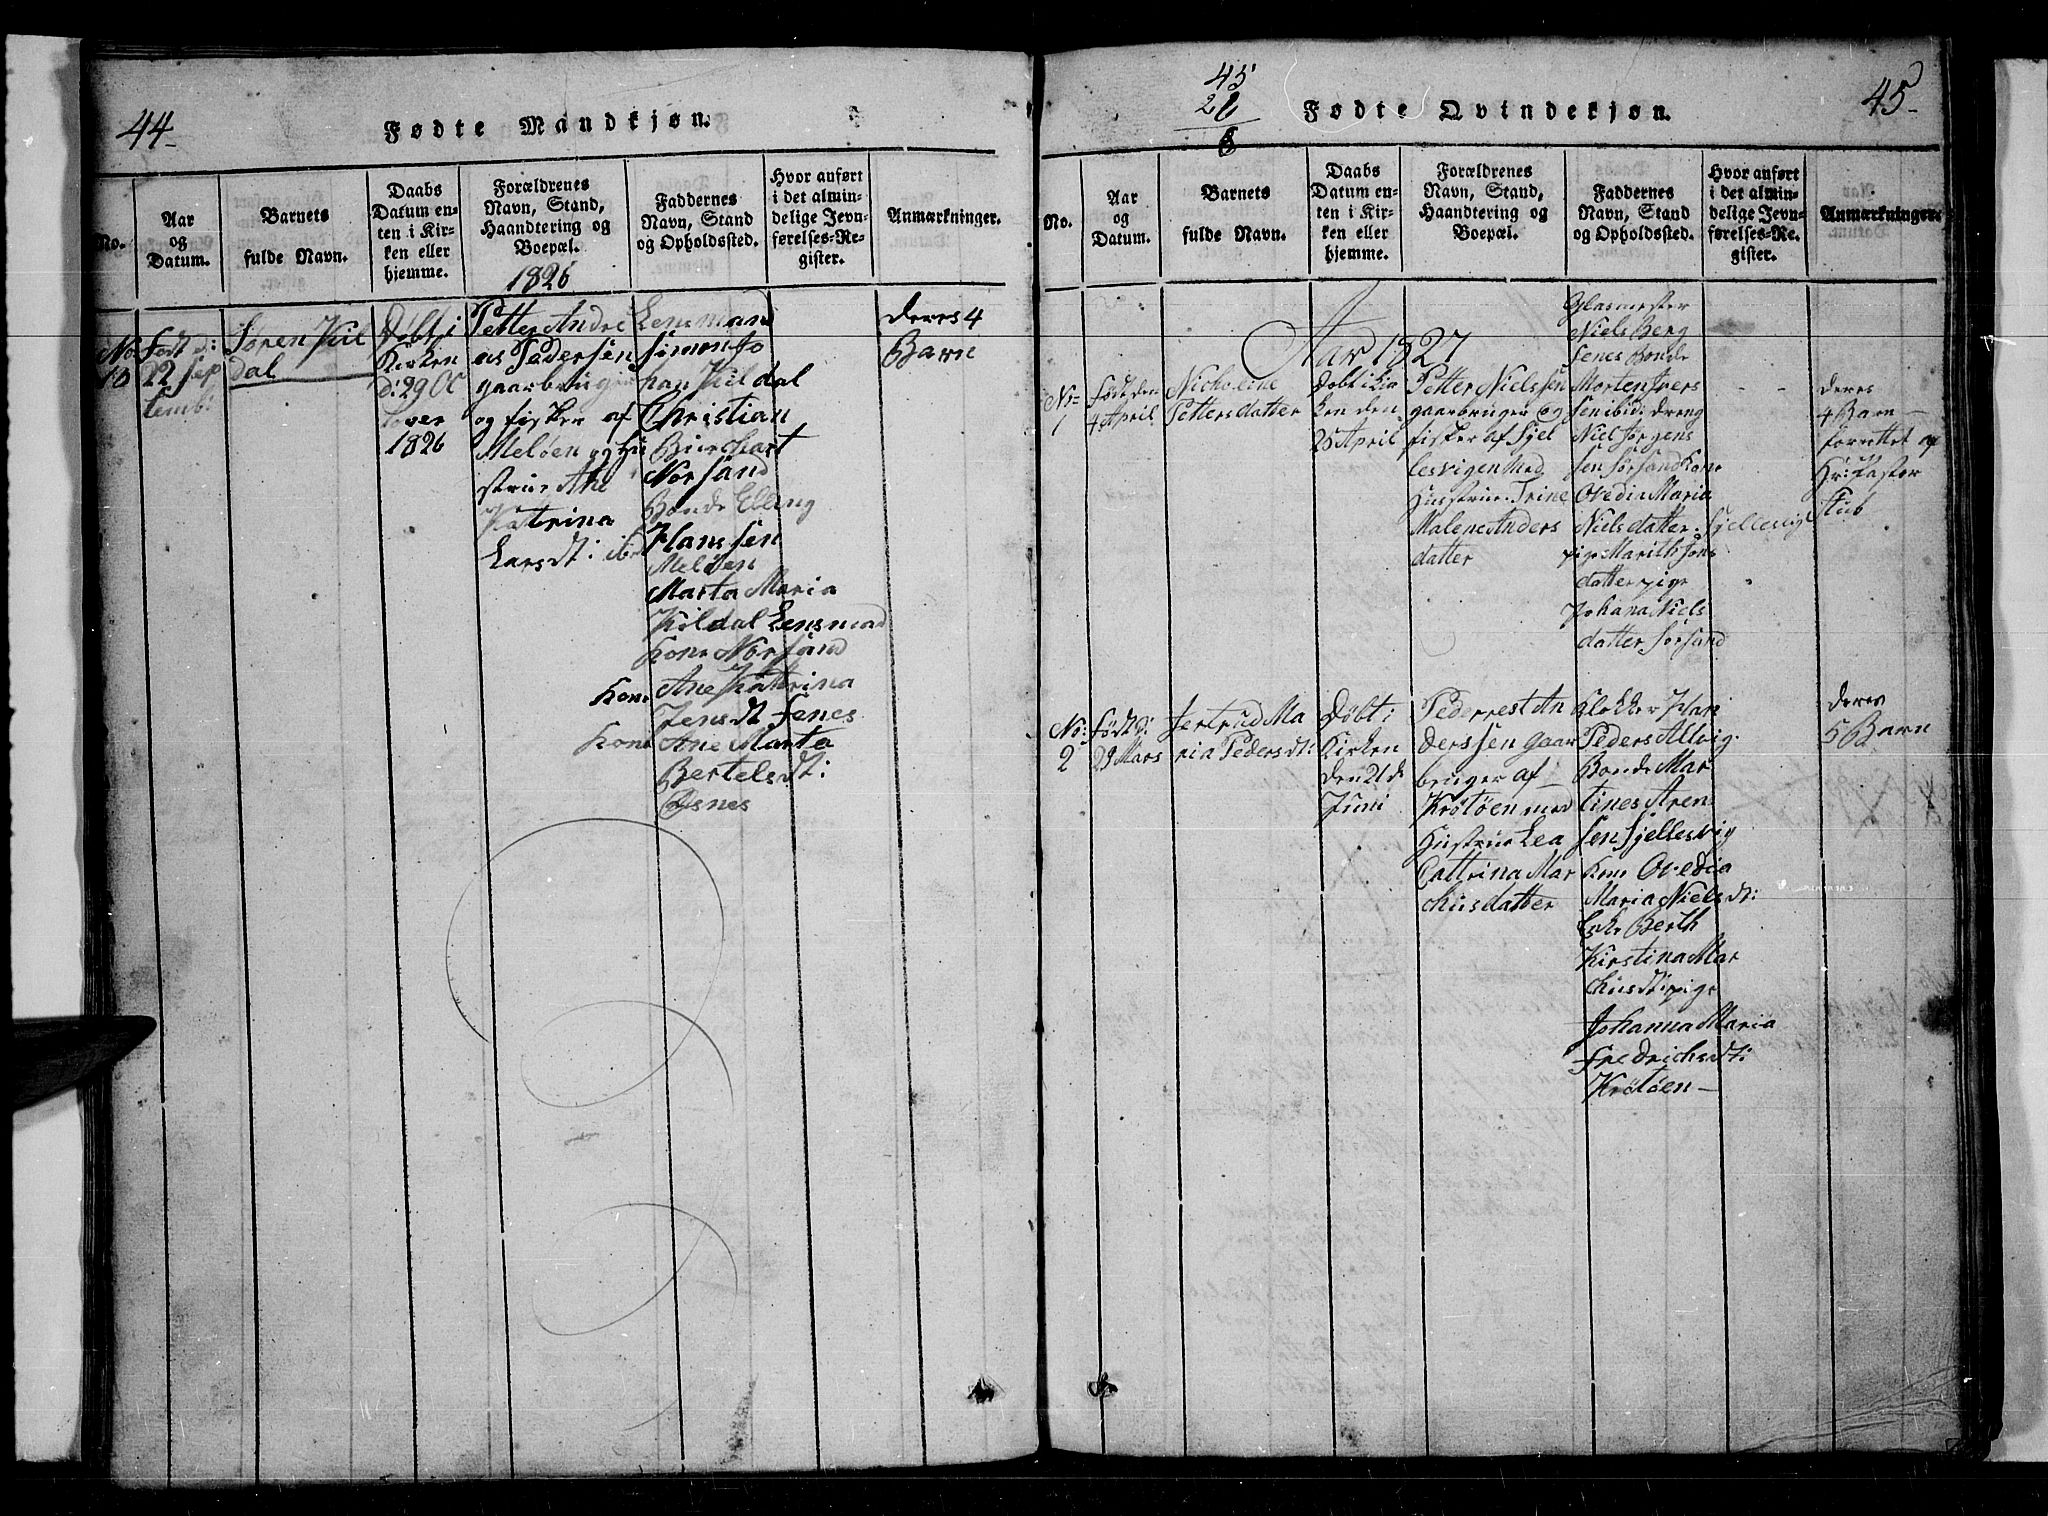 44
Fødte Mandkjøn.
No.
Aar
og
Datum.
Barnets
fulde Navn.
Daabs
Datum en-
ten i Kir-
ken eller
hjemme.
Forældrenes
Navn, Stand,
Haandtering og
Boepæl.
1826
Faddernes
Navn, Stand
og Opholdssted.
Hvor anført
i det almin-
delige Jevn-
førelses-Re-
gister.
Anmærkninger.
No
10
Født d:
22 Sep
temb:
Søren Kil
dal
Døbt i
Kirken
d: 29 Oc
tober
1826
Petter Andre
as Pedersen
gaarbruger
og fisker af
Meløen og Hu
strue Ane
Katrina
Larsdt: ibid
Lensmand
Simon Jo
han Kildal
Christian
Burchart
Norsand
Bonde Elling
Hanssen
Meløen
Marta Maria
Kildal Lensmand
Kone Norsand
Kone Ane Katrina
Jensdt Fenes
Kone Ane Marta
Bertelsdt:
Øsnes
deres 4
Barn
45
28
6
Fødte Qvindekjøn.
45
No.
Aar
og
Datum.
Barnets
fulde Navn.
Daabs
Datum en-
ten i Kir-
ken eller
hjemme.
Forældrenes
Navn, Stand,
Haandtering og
Boepæl.
Faddernes
Navn, Stand
og Opholdssted.
Hvor anført
i det almin-
delige Jevn-
førelses-Re-
gister.
Anmærkninger.
Aar 1827
No
1
Født den
4 April
Nicholine
Pettersdatter
Døbt i Kir
ken den
25 April
Petter Nielssen
gaarbruger og
fisker af Sjel
lesvigen med
Hustrue Trine
Malene Anders
datter
Glasmester
Niels Berg
Fenes Bonde
Morten Ivers
sen ibid: dreng
Niel Jørgens
sen Sørsand Kone
Ovedia Maria
Nielsdatter Sjellesvig
pige Marith Jons
datter pige
Johana Niels
datter Sørsand
deres
4 Barn
forrettet af
Hr: Pastor
Stub
No:
2
Født d:
29 Mars
Jertrud Ma
ria Pedersdt:
Døbt i
Kirken
den 21 de
Juni
Pederrest An
derssen gaar
bruger af
Krotøen med
Hustrue Lea
Cattrina Mar
chusdatter
Klokker Han
Peders Allvig
Bonde Mar
tines Aren
sen Sjellesvig
Kone Ovedia
Maria Nielsdt:
Enke Berth
Kirstina Mar
chusdt: pige
Johanna Maria
Fredrichsdt:
Krotøen
deres
5 Barn